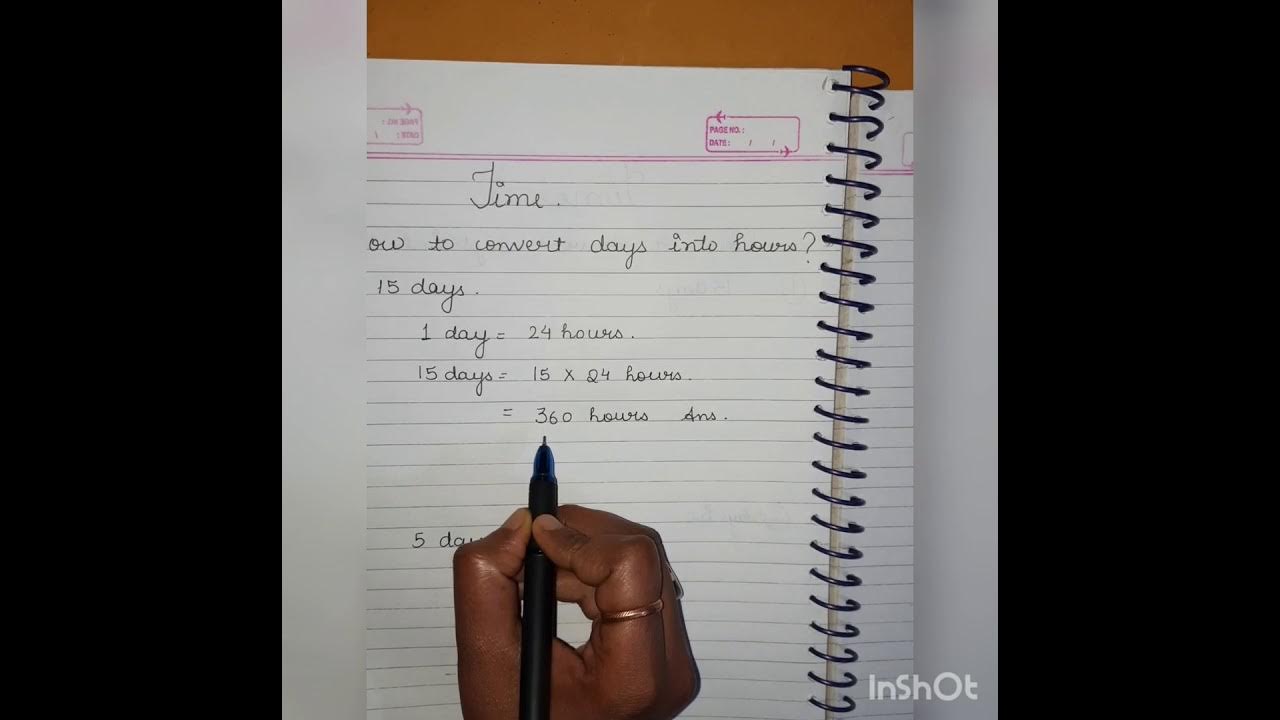 PAGE NO. :
DATE : / /
Time.
ow to convert days into hours?
15 days.
1 day = 24 hours.
15 days = 15 x 24 hours.
= 360 hours Ans.
5 day
InShOt